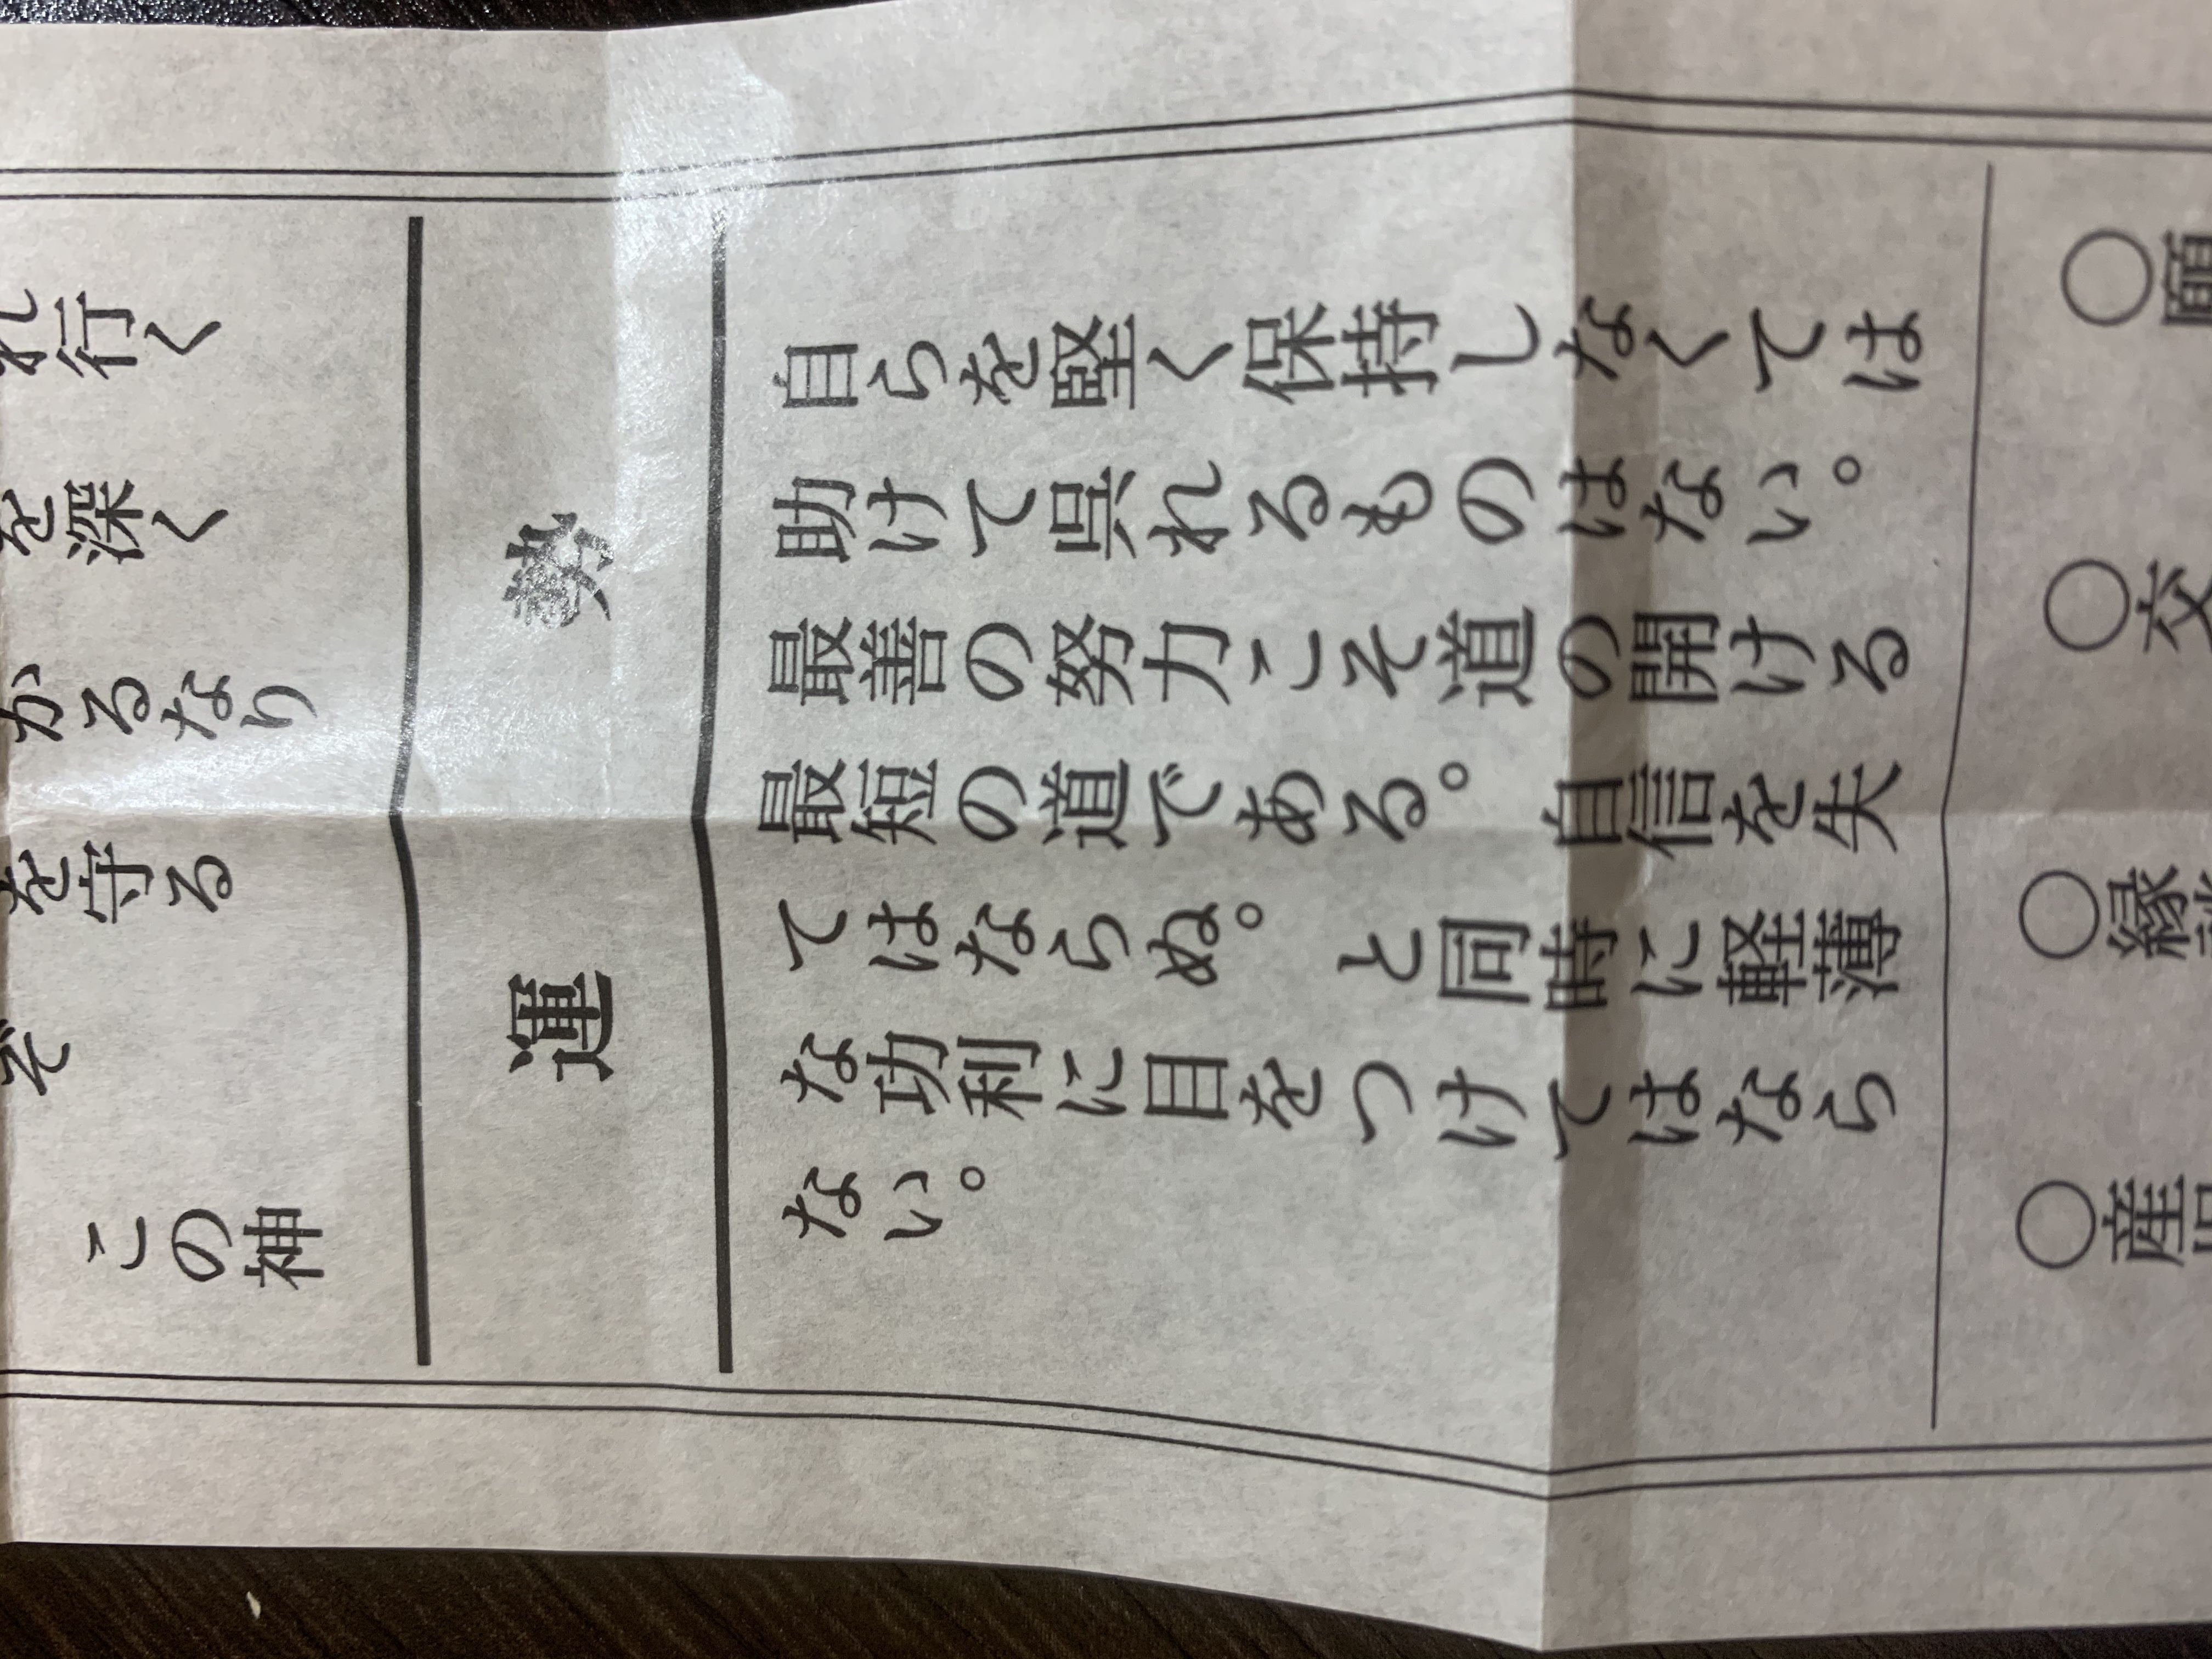 れ行く
を深く
かるなり
を守る
ぞ
この神
運勢
自らを堅く保持しなくては
助けて呉れるものはない。
最善の努力こそ道の開ける
最短の道である。自信を失
てはならぬ。と同時に軽薄
な功利に目をつけてはなら
ない。
○願
○交
○縁
○産